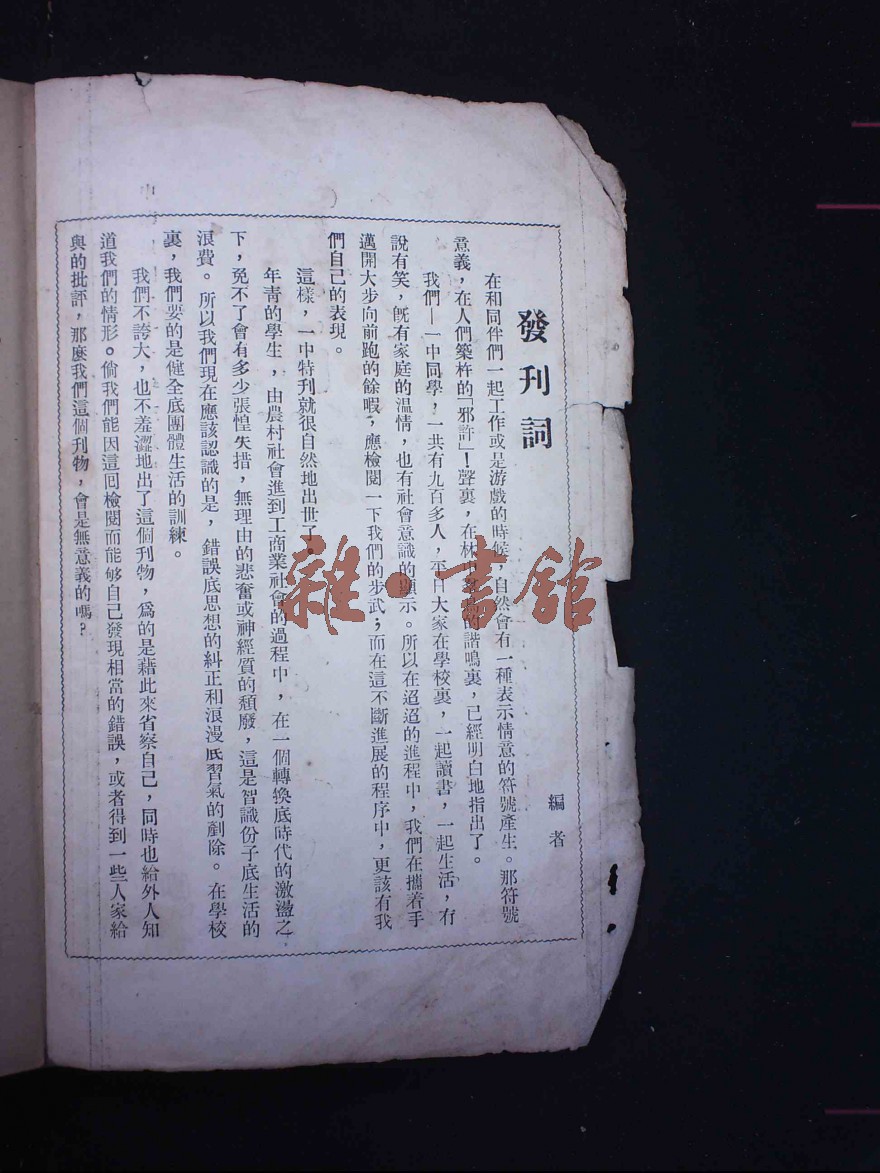 發刊詞
編者
在和同伴們一起工作或是游戲的時候，自然會有一種表示情意的符號產生。那符號
意義，在人們築杵的「邪許」！聲裏，在林的諧鳴裏，已經明白地指出了。
我們—一中同學，一共有九百多人，平日大家在學校裏，一起讀書，一起生活，有
說有笑，旣有家庭的溫情，也有社會意識的顯示。所以在迢迢的進程中，我們在攜着手
邁開大步向前跑的餘暇，應檢閱一下我們的步武；而在這不斷進展的程序中，更該有我
們自己的表現。
這樣，一中特刊就很自然地出世了。
年青的學生，由農村社會進到工商業社會的過程中，在一個轉換底時代的激盪之
下，免不了會有多少張惶失措，無理由的悲奮或神經質的頹廢，這是智識份子底生活的
浪費。所以我們現在應該認識的是，錯誤底思想的糾正和浪漫底習氣的剷除。在學校
裏，我們要的是健全底團體生活的訓練。
我們不誇大，也不羞澀地出了這個刊物，爲的是藉此來省察自己，同時也給外人知
道我們的情形。倘我們能因這回檢閱而能够自己發現相當的錯誤，或者得到一些人家給
與的批評，那麽我們這個刊物，會是無意義的嗎？
雜·書館